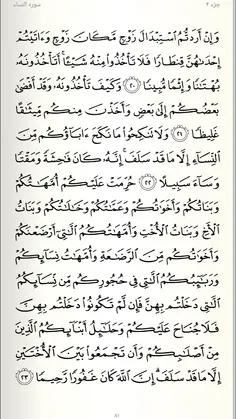 جزء ۴ سورة النساء
وَإِنْ أَرَدتُّمُ ٱسْتِبْدَالَ زَوْجٍ مَّكَانَ زَوْجٍ وَءَاتَيْتُمْ
إِحْدَىٰهُنَّ قِنطَارًا فَلَا تَأْخُذُوا۟ مِنْهُ شَيْـًٔا ۚ أَتَأْخُذُونَهُۥ
بُهْتَـٰنًا وَإِثْمًا مُّبِينًا ۝٢٠ وَكَيْفَ تَأْخُذُونَهُۥ وَقَدْ أَفْضَىٰ
بَعْضُكُمْ إِلَىٰ بَعْضٍ وَأَخَذْنَ مِنكُم مِّيثَـٰقًا
غَلِيظًا ۝٢١ وَلَا تَنكِحُوا۟ مَا نَكَحَ ءَابَآؤُكُم مِّنَ
ٱلنِّسَآءِ إِلَّا مَا قَدْ سَلَفَ ۚ إِنَّهُۥ كَانَ فَـٰحِشَةً وَمَقْتًا
وَسَآءَ سَبِيلًا ۝٢٢ حُرِّمَتْ عَلَيْكُمْ أُمَّهَـٰتُكُمْ
وَبَنَاتُكُمْ وَأَخَوَٰتُكُمْ وَعَمَّـٰتُكُمْ وَخَـٰلَـٰتُكُمْ وَبَنَاتُ
ٱلْأَخِ وَبَنَاتُ ٱلْأُخْتِ وَأُمَّهَـٰتُكُمُ ٱلَّـٰتِىٓ أَرْضَعْنَكُمْ
وَأَخَوَٰتُكُم مِّنَ ٱلرَّضَـٰعَةِ وَأُمَّهَـٰتُ نِسَآئِكُمْ
وَرَبَـٰٓئِبُكُمُ ٱلَّـٰتِى فِى حُجُورِكُم مِّن نِّسَآئِكُمُ
ٱلَّـٰتِى دَخَلْتُم بِهِنَّ فَإِن لَّمْ تَكُونُوا۟ دَخَلْتُم بِهِنَّ
فَلَا جُنَاحَ عَلَيْكُمْ وَحَلَـٰٓئِلُ أَبْنَآئِكُمُ ٱلَّذِينَ
مِنْ أَصْلَـٰبِكُمْ وَأَن تَجْمَعُوا۟ بَيْنَ ٱلْأُخْتَيْنِ
إِلَّا مَا قَدْ سَلَفَ ۗ إِنَّ ٱللَّهَ كَانَ غَفُورًا رَّحِيمًا ۝٢٣
٨١